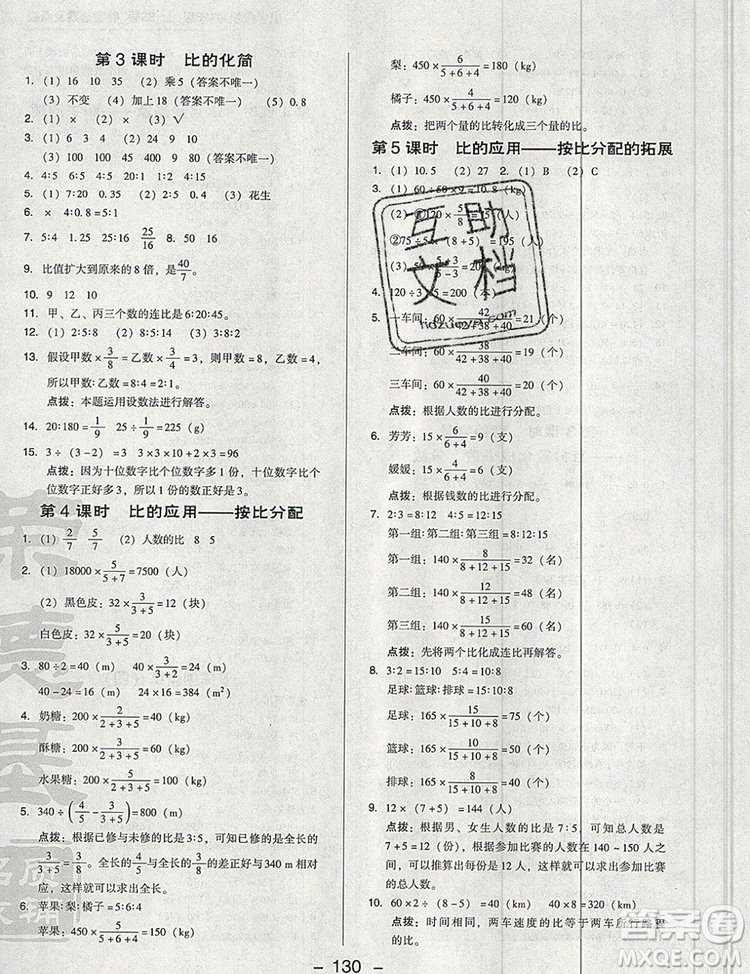 第3课时 比的化简
1. (1) 16 10 35 (2) 乘5（答案不唯一）
(3) 不变 (4) 加上18（答案不唯一） (5) 0.8
2. (1) × (2) × (3) √
3. (1) 6 3 4 (2) 24 9 10
(3) 100 400 80 (4) 9 9 100
5. (1) 7:20 (2) 0.35 (3) 花生
6. × × 4:0.8=5:1
7. 5:4 1.25 25:16 25/16 8. 50 16
9. 比值扩大到原来的8倍，是40/7。
10. 9 12 10
11. 甲、乙、丙三个数的连比是6:20:45。
12. (1) 2:5:8 (2) 2:5:8
13. 假设甲数×3/8=乙数×3/4=3，甲数=8，乙数=4，
所以甲数:乙数=8:4=2:1。
点拨：本题运用设数法进行解答。
14. 20:180=1/9 25÷1/9=225（g）
15. 3÷(3-2)=3 3×2=6 3×30+3×2=96
点拨：因为十位数字比个位数字多1份，个位数
字正好多3，所以1份的数正好是3。
第4课时 比的应用——按比分配
1. (1) 2/7 5/7 (2) 人数的比 8 5
2. (1) 18000×5/(5+7)=7500（人）
(2) 黑色皮：32×3/(3+5)=12（块）
白色皮：32×5/(3+5)=20（块）
3. 80÷2=40（m） 40×3/(3+2)=24（m）
40-24=16（m） 24×16=384（m²）
4. 奶糖：200×2/(2+3+5)=40（kg）
酥糖：200×3/(2+3+5)=60（kg）
水果糖：200×5/(2+3+5)=100（kg）
5. 340÷(4/5-3/(3+5))=800（m）
点拨：根据已修与未修的比是3:5，可知已修是全长的
3/8。全长的4/5与全长的3/8的差正好与340 m相
对应，这样就可以求出全长。
6. 苹果:梨:橘子=5:6:4
苹果：450×5/(5+6+4)=150（kg）
梨：450×6/(5+6+4)=180（kg）
橘子：450×4/(5+6+4)=120（kg）
点拨：把两个量的比转化成三个量的比。
第5课时 比的应用——按比分配的拓展
1. (1) 10.5 (2) 27 2. (1) B (2) C
互助
文档
hdzuoye.com
4. 120÷3×5=200（本）
5. 一车间：60×42/(42+38+40)=21（个）
二车间：60×38/(42+38+40)=19（个）
三车间：60×40/(42+38+40)=20（个）
点拨：根据人数的比进行分配。
6. 芳芳：15×6/(6+4)=9（支）
媛媛：15×4/(6+4)=6（支）
点拨：根据钱数的比进行分配。
7. 2:3=8:12 4:5=12:15
第一组:第二组:第三组=8:12:15
第一组：140×8/(8+12+15)=32（名）
第二组：140×12/(8+12+15)=48（名）
第三组：140×15/(8+12+15)=60（名）
点拨：先将两个比化成连比再解答。
8. 3:2=15:10 5:4=10:8
足球:篮球:排球=15:10:8
足球：165×15/(15+10+8)=75（个）
篮球：165×10/(15+10+8)=50（个）
排球：165×8/(15+10+8)=40（个）
9. 12×(7+5)=144（人）
点拨：根据男、女生人数的比是7:5，可知总人数是
7+5=12（份），根据参加比赛的人数在140~150人
之间，可以推算出每份是12人，这样可以求出参加比赛
的总人数。
10. 60×2÷(9-7)=60（km） 60×9=540（km）
点拨：时间相同，两车速度的比等于两车所行路程
的比。
- 130 -
答案圈
MXQE.COM